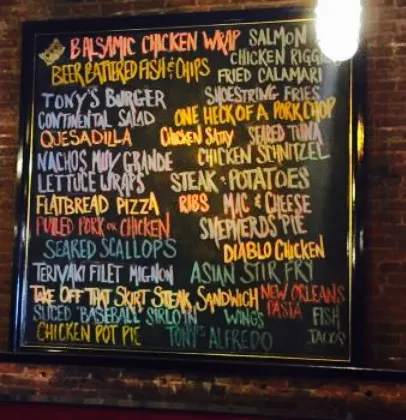 BALSAMIC CHICKEN WRAP SALMON
CHICKEN RIGGIES
BEER BATTERED FISH & CHIPS FRIED CALAMARI
TONY'S BURGER SHOESTRING FRIES
CONTINENTAL SALAD ONE HECK OF A PORK CHOP
QUESADILLA CHICKEN SATAY SEARED TUNA
NACHOS MUY GRANDE CHICKEN SCHNITZEL
LETTUCE WRAPS STEAK & POTATOES
FLATBREAD PIZZA RIBS MAC & CHEESE
PULLED PORK OR CHICKEN SHEPHERDS PIE
SEARED SCALLOPS DIABLO CHICKEN
TERIYAKI FILET MIGNON ASIAN STIR FRY
TAKE OFF THAT SKIRT STEAK SANDWICH NEW ORLEANS PASTA
SLICED "BASEBALL" SIRLOIN WINGS FISH TACOS
CHICKEN POT PIE TONY'S ALFREDO